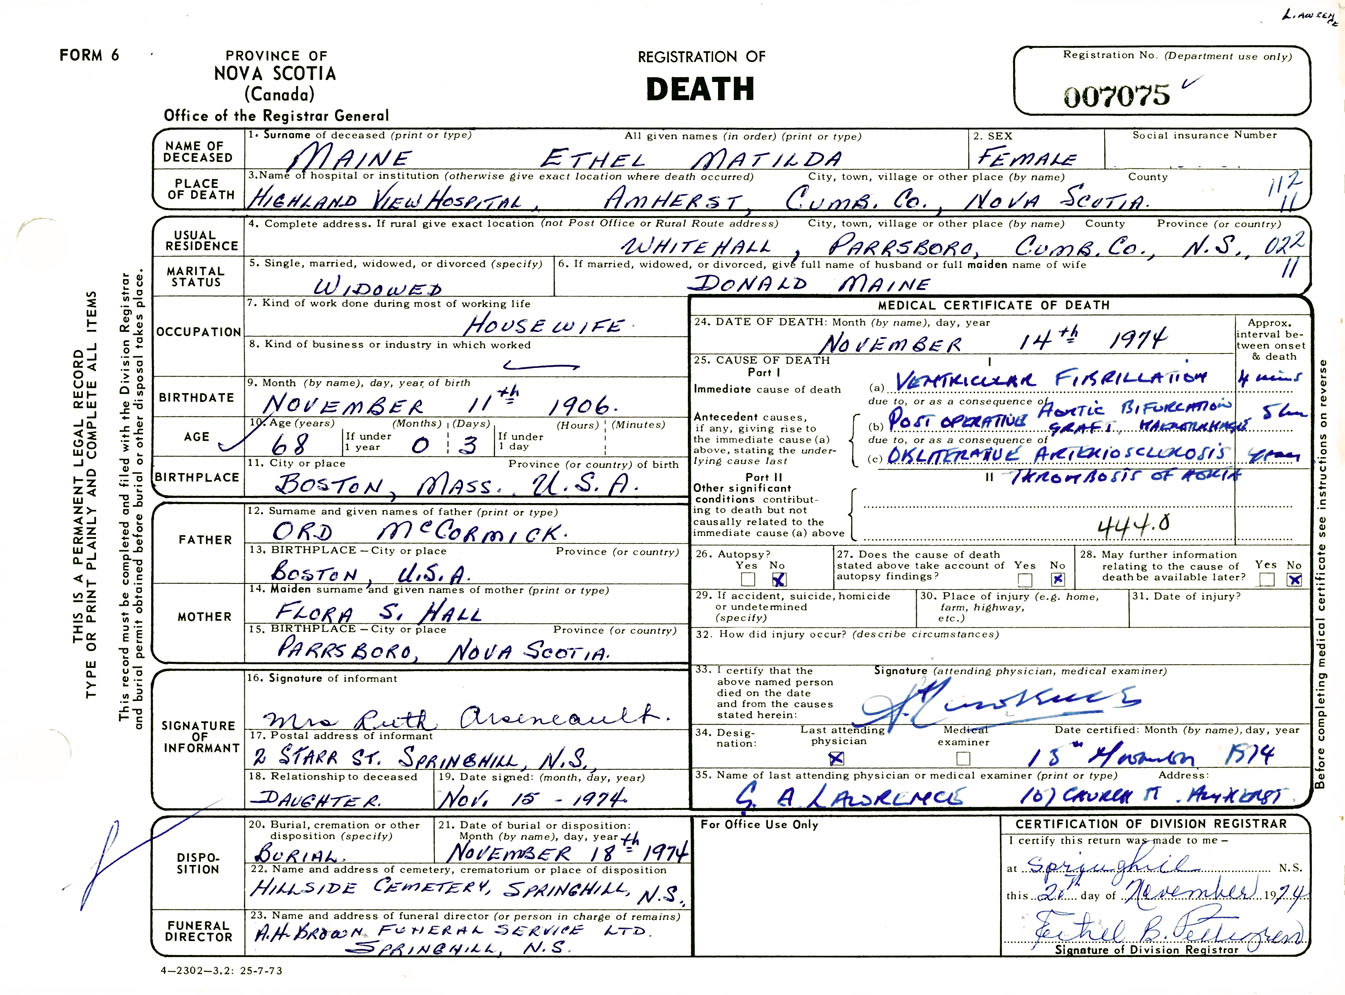 LAWRENCE
FORM 6
PROVINCE OF
NOVA SCOTIA
(Canada)
Office of the Registrar General
REGISTRATION OF
DEATH
Registration No. (Department use only)
007075
NAME OF DECEASED
1. Surname of deceased (print or type) All given names (in order) (print or type)
MAINE ETHEL MATILDA
2. SEX
FEMALE
Social insurance Number
PLACE OF DEATH
3. Name of hospital or institution (otherwise give exact location where death occurred) City, town, village or other place (by name) County
HIGHLAND VIEW HOSPITAL, AMHERST, CUMB. CO., NOVA SCOTIA.
112
11
USUAL RESIDENCE
4. Complete address. If rural give exact location (not Post Office or Rural Route address) City, town, village or other place (by name) County Province (or country)
WHITEHALL, PARRSBORO, CUMB. CO., N.S.,
022
11
MARITAL STATUS
5. Single, married, widowed, or divorced (specify)
WIDOWED
6. If married, widowed, or divorced, give full name of husband or full maiden name of wife
DONALD MAINE
OCCUPATION
7. Kind of work done during most of working life
HOUSEWIFE.
8. Kind of business or industry in which worked
BIRTHDATE
9. Month (by name), day, year of birth
NOVEMBER 11th 1906.
AGE
10. Age (years) (Months) (Days) (Hours) (Minutes)
68 If under 1 year 0 3 If under 1 day
BIRTHPLACE
11. City or place Province (or country) of birth
BOSTON, MASS. U.S.A.
FATHER
12. Surname and given names of father (print or type)
ORD McCORMICK.
13. BIRTHPLACE – City or place Province (or country)
BOSTON, U.S.A.
MOTHER
14. Maiden surname and given names of mother (print or type)
FLORA S. HALL
15. BIRTHPLACE – City or place Province (or country)
PARRSBORO, NOVA SCOTIA.
SIGNATURE OF INFORMANT
16. Signature of informant
Mrs Ruth Arseneault.
17. Postal address of informant
2 STARR ST. SPRINGHILL, N.S.,
18. Relationship to deceased
DAUGHTER.
19. Date signed: (month, day, year)
NOV. 15 - 1974.
DISPO-
SITION
20. Burial, cremation or other disposition (specify)
BURIAL.
21. Date of burial or disposition: Month (by name), day, year
NOVEMBER 18th 1974
22. Name and address of cemetery, crematorium or place of disposition
HILLSIDE CEMETERY, SPRINGHILL, N.S.,
FUNERAL DIRECTOR
23. Name and address of funeral director (or person in charge of remains)
A.H. BROWN FUNERAL SERVICE LTD.
SPRINGHILL, N.S.
4–2302–3.2: 25-7-73
MEDICAL CERTIFICATE OF DEATH
24. DATE OF DEATH: Month (by name), day, year
NOVEMBER 14th 1974
Approx. interval between onset & death
25. CAUSE OF DEATH
Part I
I
Immediate cause of death
(a) VENTRICULAR FIBRILLATION 4 mins
due to, or as a consequence of
Antecedent causes, if any, giving rise to the immediate cause (a) above, stating the underlying cause last
(b) POST OPERATIVE AORTIC BIFURCATION GRAFT, HAEMORRHAGE
due to, or as a consequence of
(c) OBLITERATIVE ARTERIOSCLEROSIS years
Part II
II THROMBOSIS OF AORTA
Other significant conditions contributing to death but not causally related to the immediate cause (a) above
444.0
26. Autopsy?
Yes No
27. Does the cause of death stated above take account of autopsy findings?
Yes No
28. May further information relating to the cause of death be available later?
Yes No
29. If accident, suicide, homicide or undetermined (specify)
30. Place of injury (e.g. home, farm, highway, etc.)
31. Date of injury?
32. How did injury occur? (describe circumstances)
33. I certify that the above named person died on the date and from the causes stated herein:
Signature (attending physician, medical examiner)
34. Designation:
Last attending physician
Medical examiner
Date certified: Month (by name), day, year
15th November 1974
35. Name of last attending physician or medical examiner (print or type) Address:
G. A. LAWRENCE 107 CHURCH ST. AMHERST.
For Office Use Only
CERTIFICATION OF DIVISION REGISTRAR
I certify this return was made to me –
at Springhill N.S.
this 20th day of November 1974
Ethel B. Pettigrew
Signature of Division Registrar
THIS IS A PERMANENT LEGAL RECORD
TYPE OR PRINT PLAINLY AND COMPLETE ALL ITEMS
This record must be completed and filed with the Division Registrar
and burial permit obtained before burial or other disposal takes place.
Before completing medical certificate see instructions on reverse